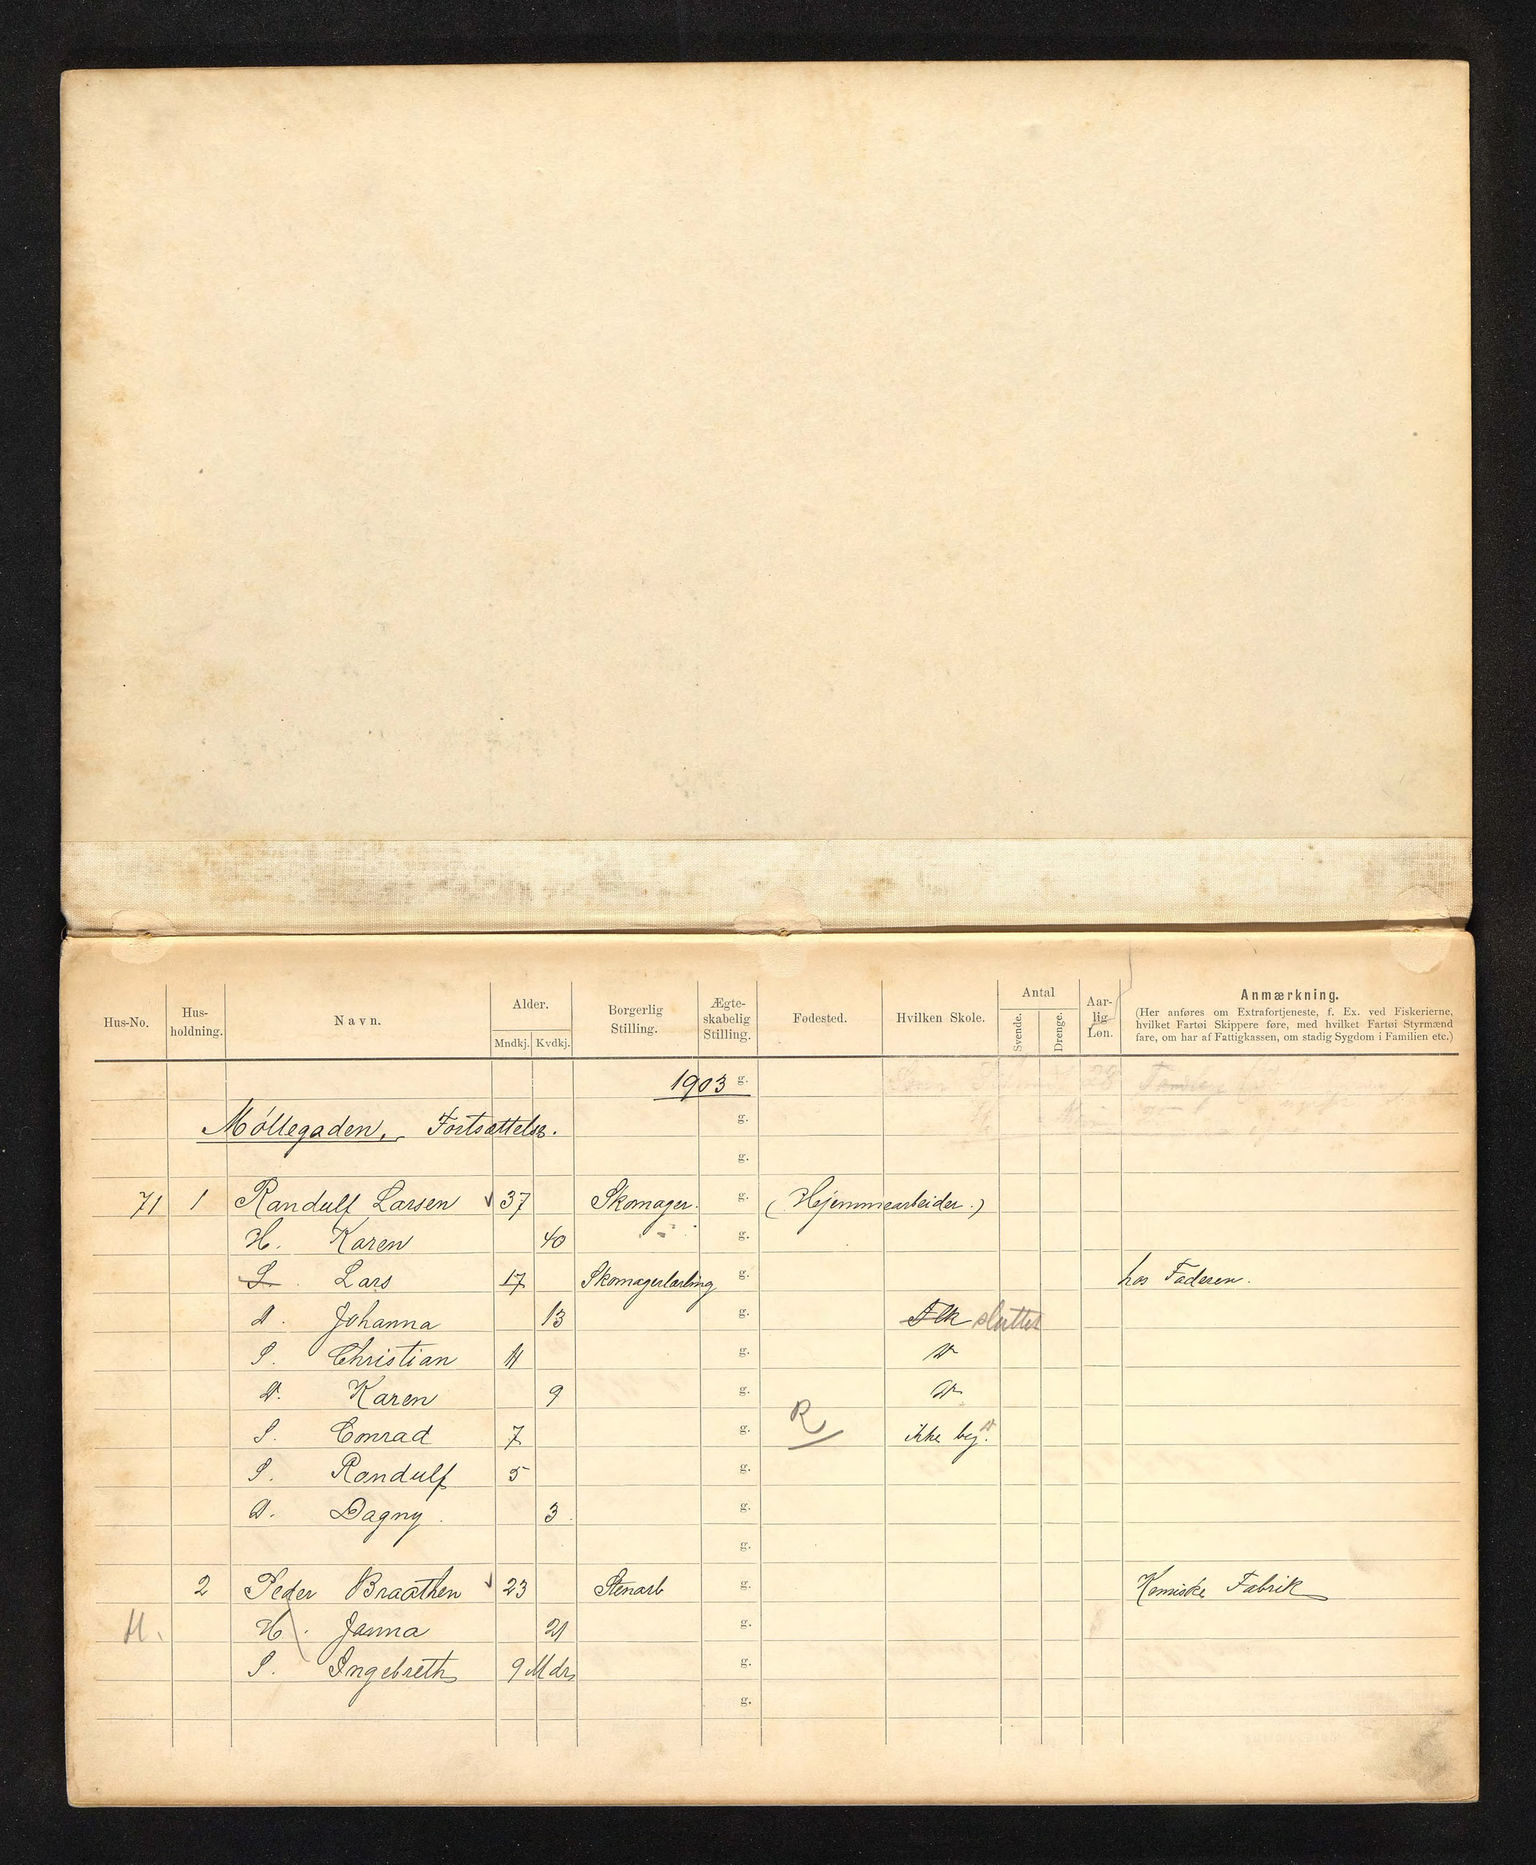 Hus-No. Hus-holdning. Navn. Alder. Mndkj. Kvdkj. Borgerlig Stilling. Ægte-skabelig Stilling. Fødested. Hvilken Skole. Antal Svende. Drenge. Aar-lig Løn. Anmærkning.
(Her anføres om Extrafortjeneste, f. Ex. ved Fiskerierne,
hvilket Fartøi Skippere føre, med hvilket Fartøi Styrmænd
fare, om har af Fattigkassen, om stadig Sygdom i Familien etc.)
1903 g.
Møllegaden. Fortsættelse. g.
g.
71 1 Randulf Larsen 37 Skomager. g. (Hjemmearbeider.)
H. Karen 40 g.
S. Lars 17 Skomagerlærling g. hos Faderen.
D. Johanna 13 g. Flk sluttet
S. Christian 11 g. D
D. Karen 9 g. D
S. Conrad 7 g. R ikke beg.
S. Randulf 5 g.
D. Dagny. 3 g.
g.
2 Peder Braathen 23 Stenarb g. Kemiske Fabrik
H. Janna 21 g.
S. Ingebreth 9 Mdr g.
g.